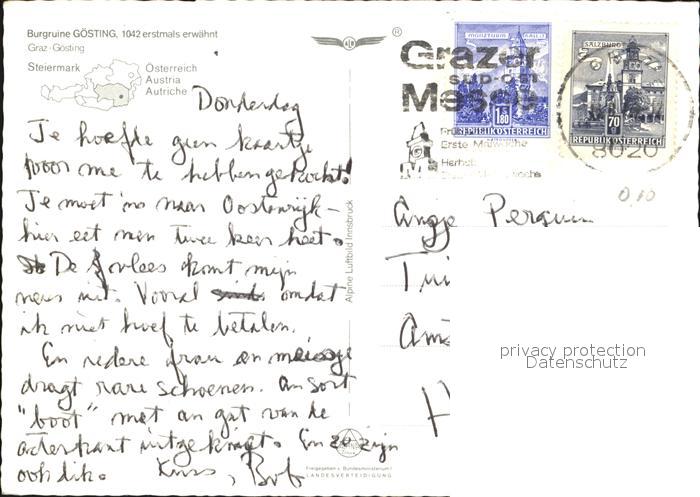 Burgruine GÖSTING, 1042 erstmals erwähnt
Graz - Gösting
Steiermark
Österreich
Austria
Autriche
®
MÜNZTURM HALL I.
1.80
REPUBLIK ÖSTERREICH
SALZBURG
70
REPUBLIK ÖSTERREICH
Grazer
SÜD-OST
Messe
Erste Maiwoche
Herbst
8020
0,10
Donderdag
Je hoefde geen kaartje
voor me te hebben gekocht!
Je moet 'ns naar Oostenrijk -
hier eet men twee keer heet.
De vlees komt mijn
neus uit. Vooral omdat
ik niet hoef te betalen.
En iedere frau en meisje
dragt rare schoenen. an sort
"boot" met an gat van de
achterkant uitgeknagt. En ze zijn
ook dik. Kuss, Bob
Antje Perquin
Tui
Ams
H
Alpine Luftbild Innsbruck
Freigegeben v. Bundesministerium f.
LANDESVERTEIDIGUNG
privacy protection
Datenschutz